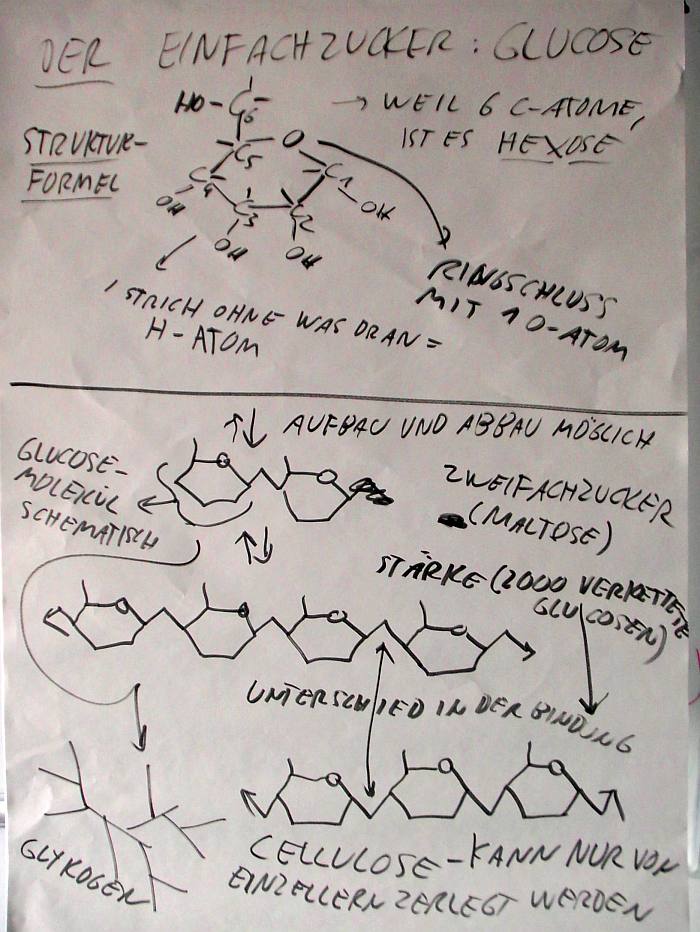 DER EINFACHZUCKER: GLUCOSE
HO-C6
→ WEIL 6 C-ATOME,
IST ES HEXOSE
STRUKTUR-
FORMEL
C5
O
C1
C4
OH
C3
C2
OH
OH
OH
RINGSCHLUSS
MIT 1 O-ATOM
1 STRICH OHNE WAS DRAN =
H-ATOM
↑↓ AUFBAU UND ABBAU MÖGLICH
GLUCOSE-
MOLEKÜL
SCHEMATISCH
ZWEIFACHZUCKER
(MALTOSE)
↑↓
STÄRKE (2000 VERKETTETE
GLUCOSEN)
UNTERSCHIED IN DER BINDUNG
GLYKOGEN
CELLULOSE-KANN NUR VON
EINZELLERN ZERLEGT WERDEN